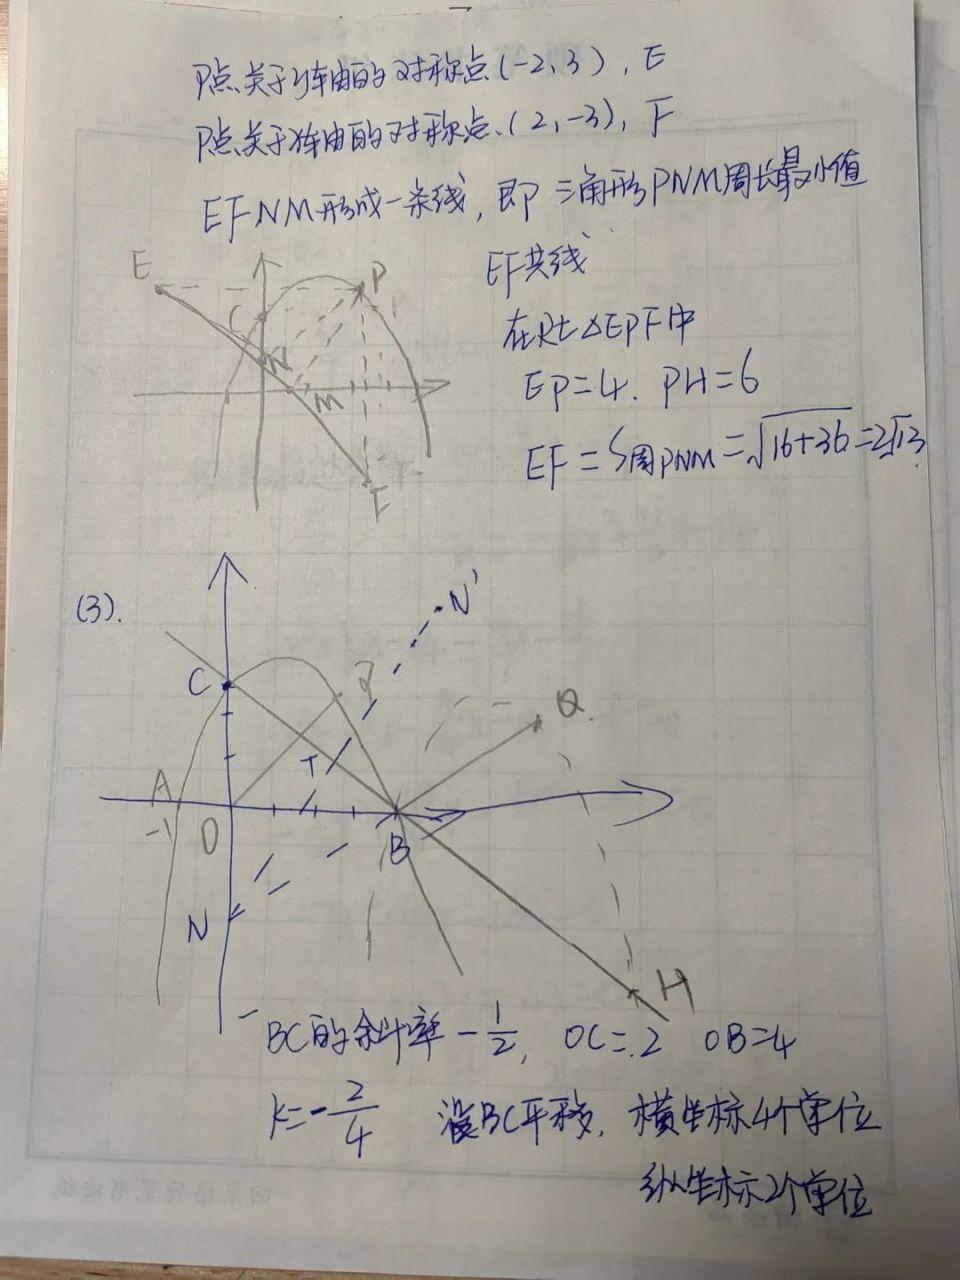 P点关于y轴的对称点(-2,3), E
P点关于x轴的对称点(2,-3), F
EFNM形成一条线, 即三角形PNM周长最小值
EF共线
在Rt△EPF中
EP=4. PH=6
EF=S周PNM=√16+36=2√13
E
P
C
N
M
F
(3).
N'
C
Q
T
A
-1
O
B
N
H
BC的斜率-1/2, OC=2 OB=4
k=-2/4 沿BC平移, 横坐标4个单位
纵坐标2个单位